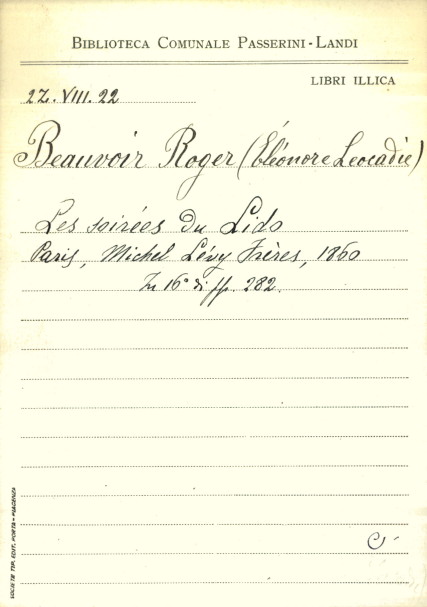 BIBLIOTECA COMUNALE PASSERINI-LANDI
LIBRI ILLICA
22.VIII.22
Beauvoir Roger (Éléonore Leocadie)
Les soirées du Lido
Paris, Michel Lévy Frères, 1860
In 16° di pp. 282.
SOCIETÀ TIP. EDIT. PORTA - PIACENZA